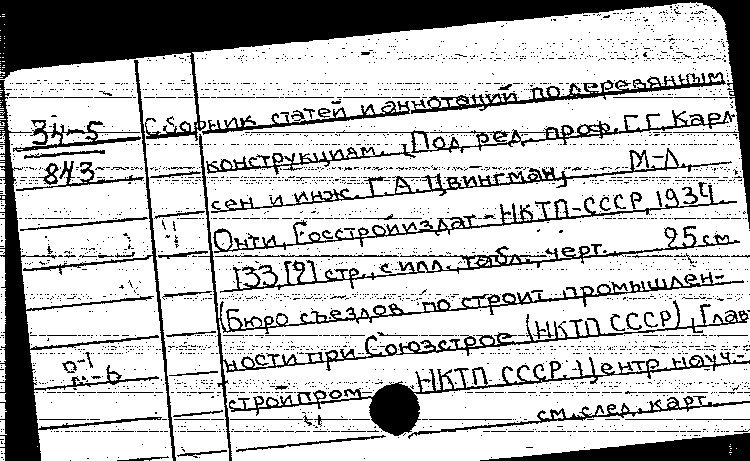 34-5
843
Сборник статей и аннотаций по деревянным
конструкциям. [Под ред. проф. Г.Г. Карл
сен и инж. Г.А. Цвингман, М.-Л.,
Онти, Госстройиздат - НКТП-СССР, 1934.
133,[2] стр., с илл., табл., черт. 25 см.
(Бюро съездов по строит. промышлен-
ности при Союзстрое (НКТП СССР), Глав
стройпром НКТП СССР. Центр. науч.-
см. след. карт.